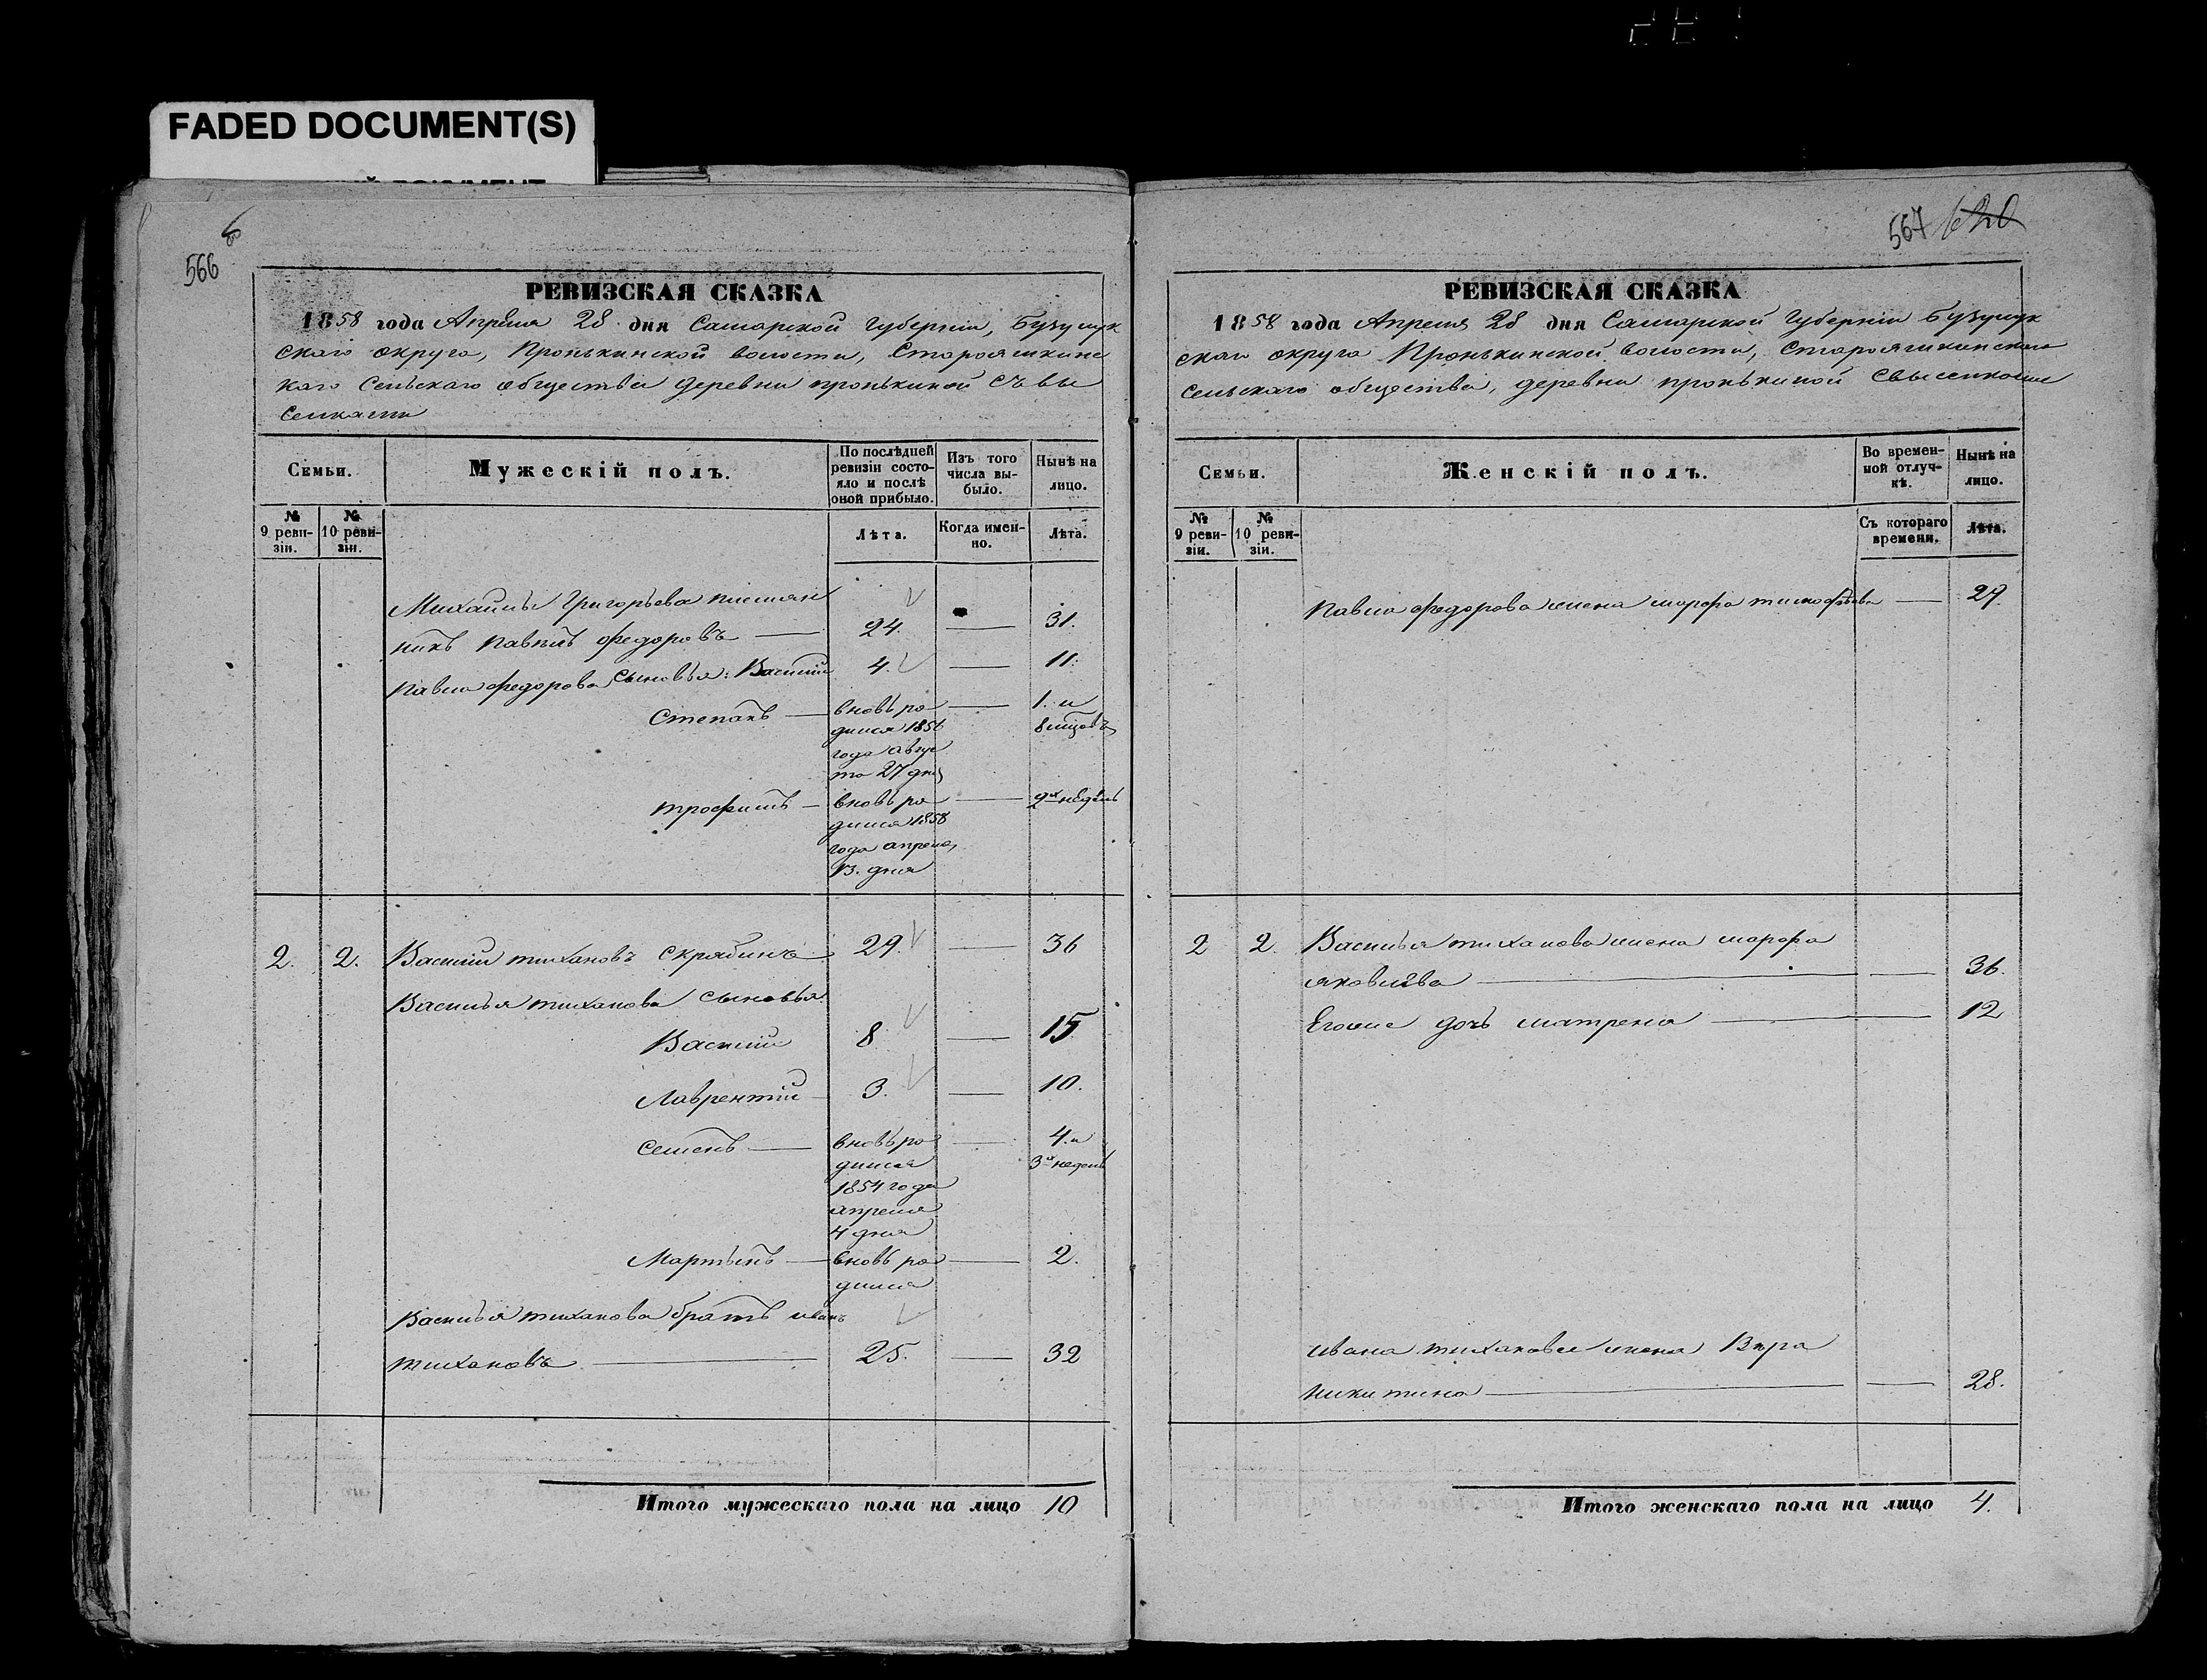 FADED DOCUMENT(S)
566
РЕВИЗСКАЯ СКАЗКА
1858 года Апреля 28 дня Самарской губерніи, Бузулук
скаго округа, Пронькинской волости, Старояшкинс
каго Сельскаго общества деревни пронькиной съ вы
селками
Семьи.
Мужескій полъ.
По послѣдней ревизіи состояло и послѣ оной прибыло.
Изъ того числа выбыло.
Нынѣ на лицо.
№ 9 ревизіи.
№ 10 ревизіи.
Лѣта.
Когда именно.
Лѣта.
Михаилы Григорьева племян
никъ Павелъ федоровъ — 24. — 31.
Павла федорова Сыновья: Василий 4. — 11.
Степанъ — вновь ро — 1. и
дился 1856 8 мцовъ
года авгус
та 27 дня
трофимъ — вновь ро — 2х недель
дился 1858
года апреля
13. дня
2. 2. Василий тихановъ Скрябинъ 29. — 36
Василья тиханова Сыновья
Василий 8 — 15
Лаврентий 3. — 10.
Семенъ — вновь ро — 4. и
дился 3х недель
1854 года
апреля
4 дня
Мартынъ — вновь ро — 2.
дился
Василья тиханова братъ иванъ
тихановъ — 25. — 32
Итого мужескаго пола на лицо 10
567 620
РЕВИЗСКАЯ СКАЗКА
1858 года Апреля 28 дня Самарской Губерніи Бузулук
скаго округа Пронькинской волости, Старояшкинскаго
сельскаго общества, деревни пронькиной Свыселками
Семьи.
Женскій полъ.
Во временной отлучкѣ.
Нынѣ на лицо.
№ 9 ревизіи.
№ 10 ревизіи.
Съ котораго времени.
Лѣта.
Павла федорова жена марфа тимофѣева — 29.
2 2. Василья тиханова жена марфа
яковлѣва — 36.
Егоже дочь матрена — 12
ивана тиханова жена Вѣра
никитина — 28.
Итого женскаго пола на лицо 4.